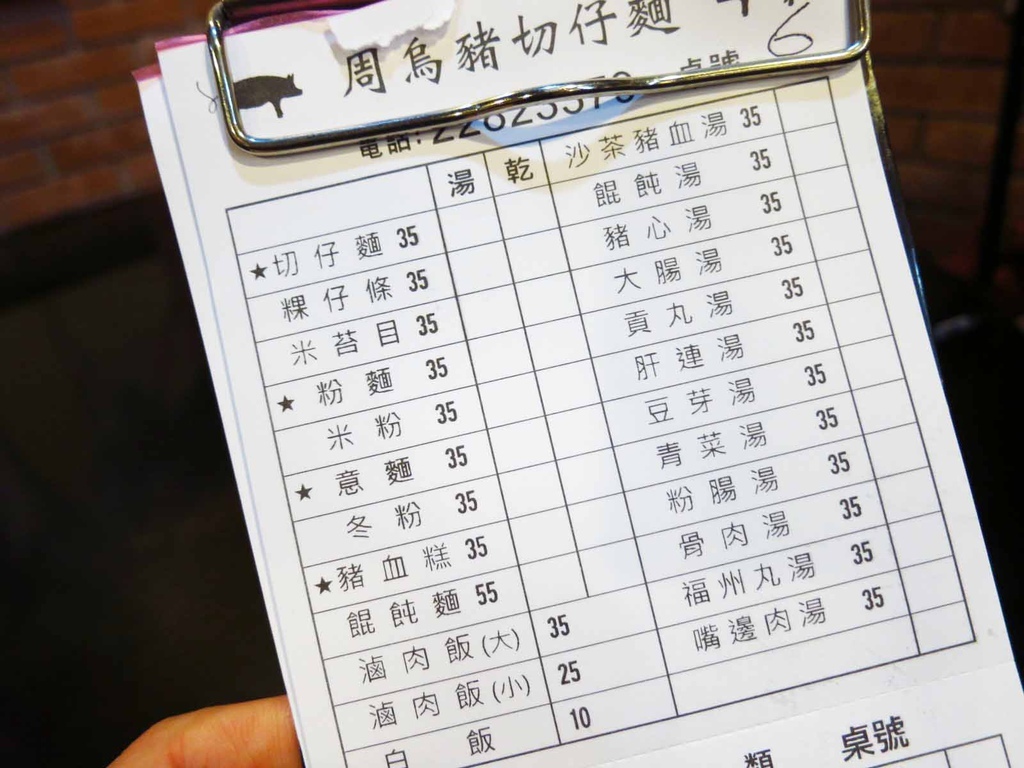 周烏豬切仔麵
6
電話:
桌號
湯 乾
★切仔麵 35
粿仔條 35
米苔目 35
★粉麵 35
米粉 35
★意麵 35
冬粉 35
★豬血糕 35
餛飩麵 55
滷肉飯(大) 35
滷肉飯(小) 25
白飯 10
沙茶豬血湯 35
餛飩湯 35
豬心湯 35
大腸湯 35
貢丸湯 35
肝連湯 35
豆芽湯 35
青菜湯 35
粉腸湯 35
骨肉湯 35
福州丸湯 35
嘴邊肉湯 35
類 桌號